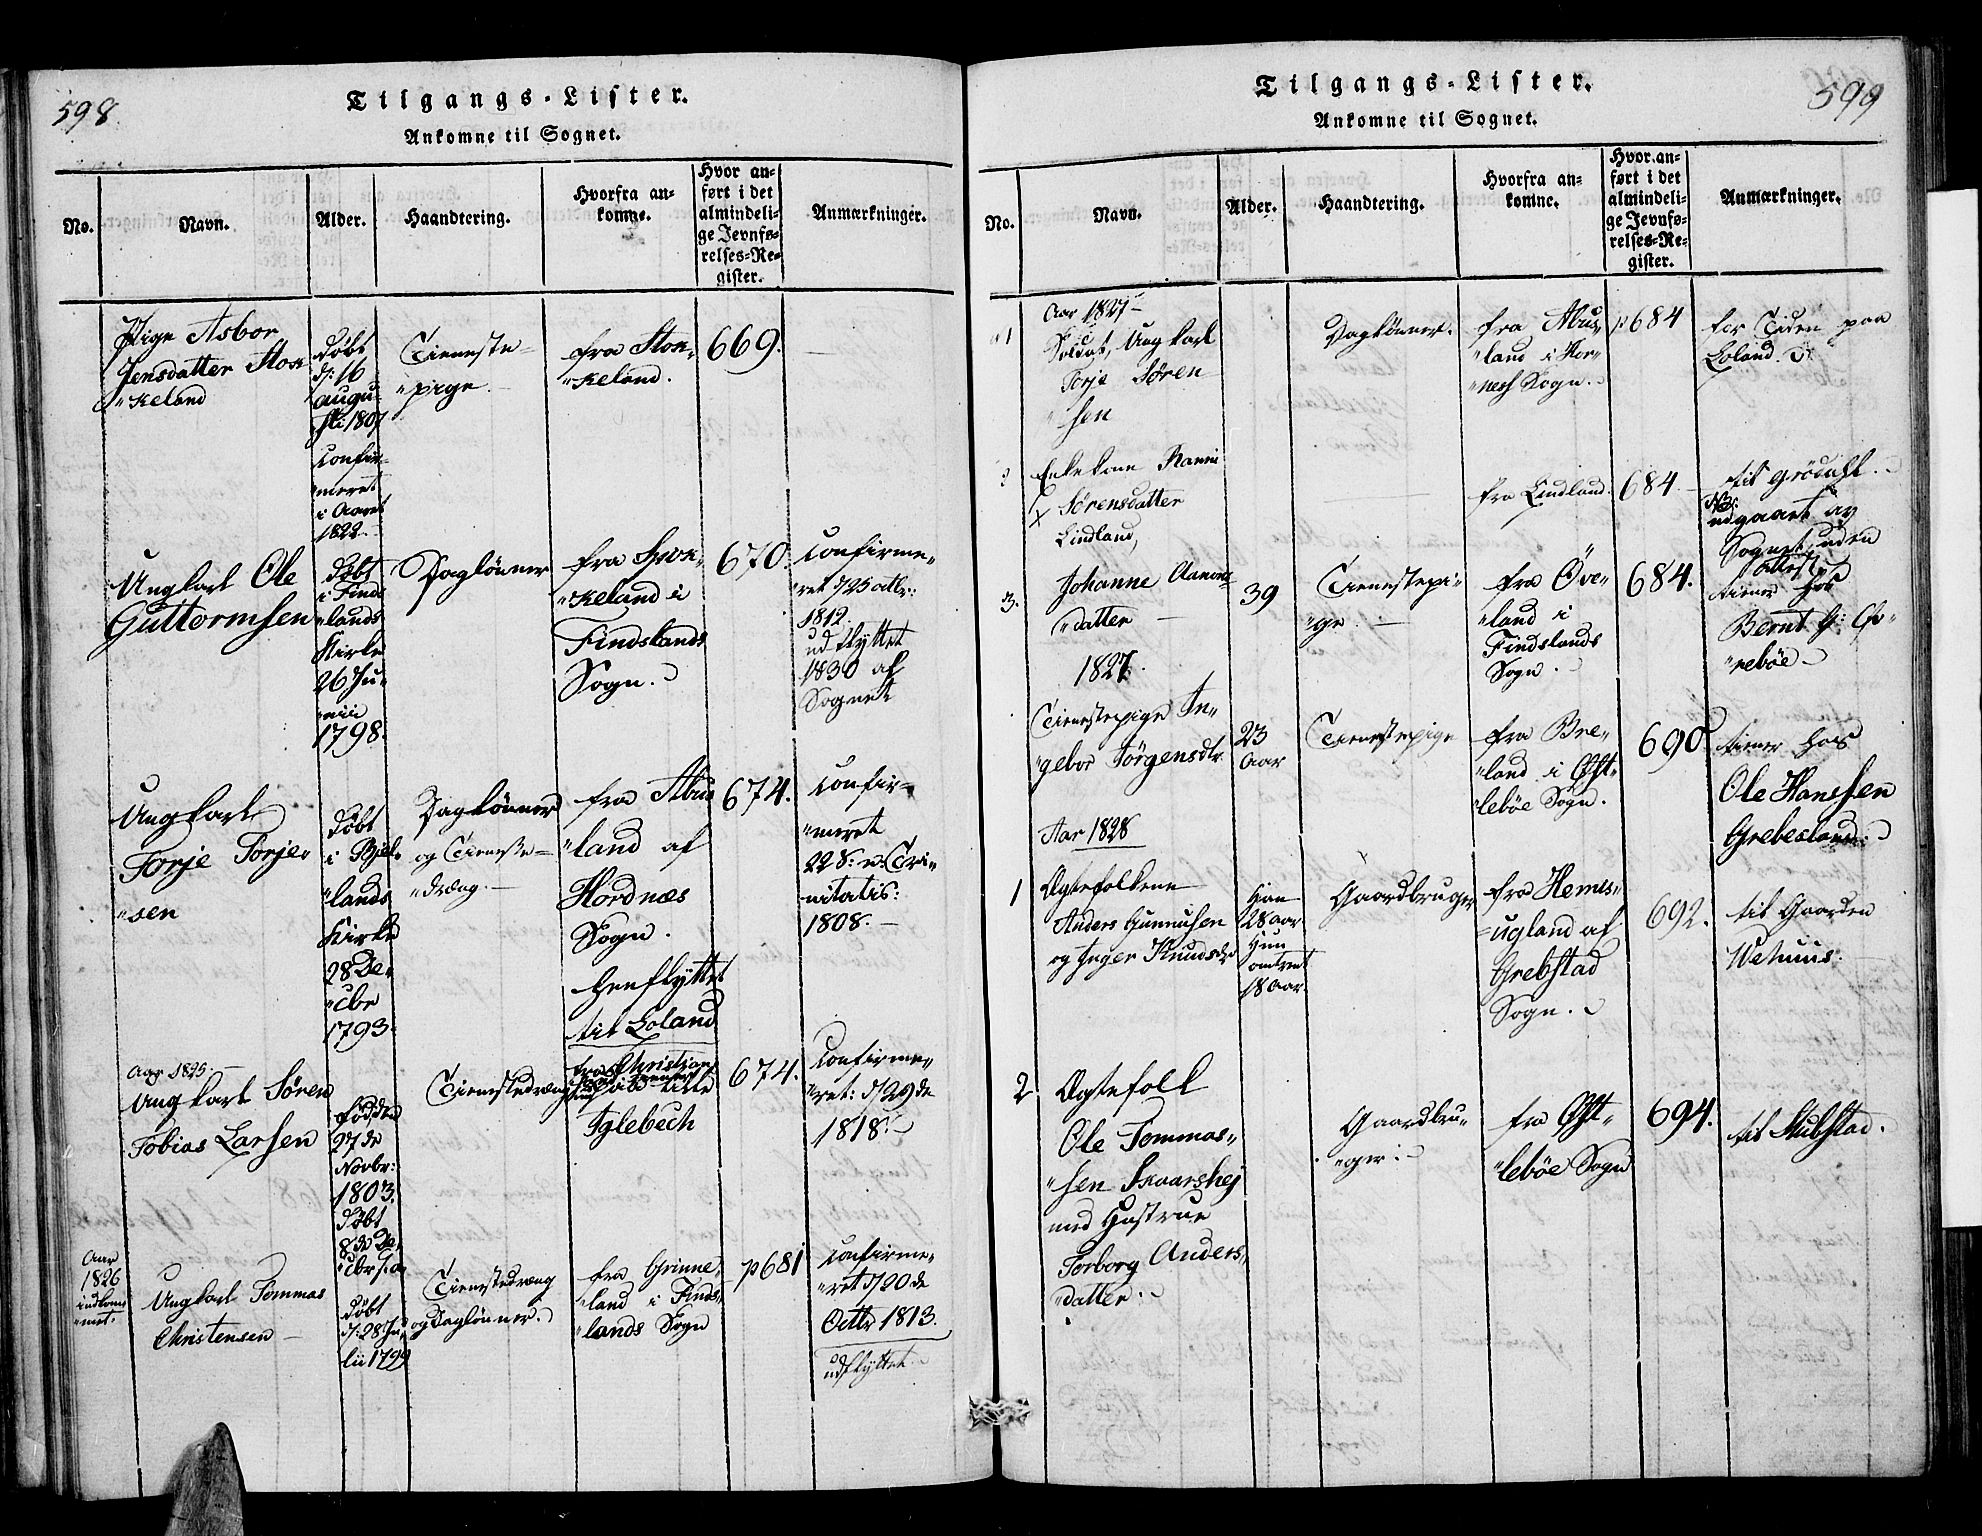 598.
Tilgangs-Lister.
Ankomne til Sognet.
No.
Navn.
Alder.
Haandtering.
Hvorfra an-
komne.
Hvor an-
ført i det
almindeli-
ge Jevnfø-
relses-Re-
gister.
Anmærkninger.
Pige Asbor
Jensdatter Stok
"keland
døbt
d: 16
augu-
sti 1807
Confir-
"meret
i Aaret
1822.
Tieneste-
"pige.
fra Stok-
"keland.
669.
Ungkarl Ole
Guttormsen
døbt
i Finds
"lands
Kirke
26 Ju-
"nii
1798.
Daglønner
fra
"keland i
Findslands
Sogn.
670.
Confirme-
"ret
1812.
udflyttet
1830 af
Sognet
Ungkarl
Torje Torje-
"sen
døbt
i Bjel-
"lands
Kirke
28 De-
"cbr
1793.
Daglønner
og Tieneste-
"dreng.
fra Abus
"land af
Hordnæs
Sogn.
henflyttet
til Loland
674.
Confir-
"meret
22 S: n: Tri-
nitatis:
1808.
Aar 1825.
Ungkarl Søren
Tobias Larsen
født d
27 de
Novbr:
1803.
døbt
8 de De-
"cbr s. a.
Tienestedreng
fra Christian
lille
Iglebech
674.
Confirme-
"ret: d 29 de
1818.
Aar
1826
indkom
"met.
Ungkarl Tommas
Christensen
døbt
d: 28 Ju-
lii 1799
Tienestedreng
og Daglønner.
fra Grinne-
"land i Finds-
"lands Sogn
p 681
Confirme-
"ret d 20 de
Octbr 1813.
udflyttet.
599
Tilgangs-Lister.
Ankomne til Sognet.
No.
Navn.
Alder.
Haandtering.
Hvorfra an-
komne.
Hvor an-
ført i det
almindeli-
ge Jevnfø-
relses-Re-
gister.
Anmærkninger.
Aar 1827
1
Soldat, Ungkarl
Torje Søren
"sen
Daglønner.
fra Abus-
"land i Hor-
"ness Sogn.
p 684
for Tiden paa
Loland.
Enkekone
Sørensdatter
Lindland,
fra Lindland.
684.
til Grödahl.
NB:
udgaaet af
Sognet uden
attest
3.
Johanne Aamon
"datter
1827.
39
Tienestepi-
"ge.
fra Öve-
"land i
Findslands
Sogn.
684.
tiener hos
Bernt
"rebøe
Tienestepige In-
"gebor Jörgensdtr
23
Aar
Tienestepige
fra Bre-
"land i Øst-
"lebøe Sogn.
690
tiener hos
Ole Hanssen
Grebesland.
Aar 1828
1
Ægtefolkene
Anders Gunnufsen
og Inger Knudsdr
Han
28 Aar
Hun
omtrent
18 Aar.
Gaardbruger
fra Hemis-
"ugland af
Grebstad
Sogn.
692.
til Gaarden
Wehuus.
2
Ægtefolk
Ole Tommas-
"sen Skaarshej
med Hustrue
Torborg Anders-
"datter.
Gaardbru-
"ger.
fra Øst-
"lebøe Sogn
694.
til Stubstad.